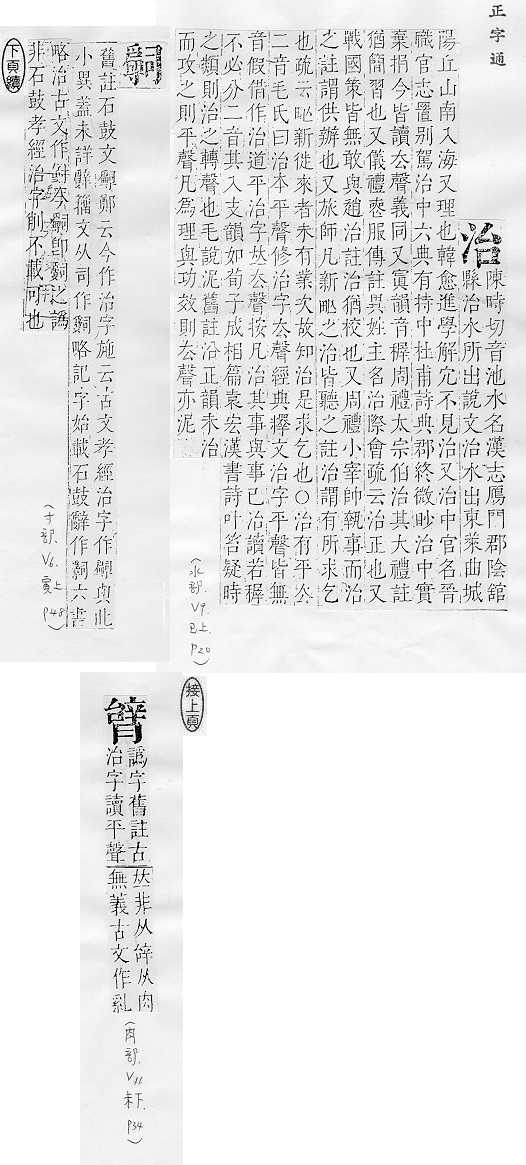 正字通
治
陳時切音池水名漢志鴈門郡陰舘
縣治水所出說文治水出東萊曲城
陽丘山南入海又理也韓愈進學解宂不見治又治中官名晉
職官志置别駕治中六典有持中杜甫詩典郡終微眇治中實
棄捐今皆讀去聲義同又寘韻音穉周禮大宗伯治其大禮註
猶簡習也又儀禮喪服傳註異姓主名治際會疏云治正也又
戰國策皆無敢與趙治註治猶校也又周禮小宰帥執事而治
之註謂供辦也又旅師凡新甿之治皆聽之註治謂有所求乞
也疏云甿新徙來者未有業次故知治是求乞也○治有平去
二音毛氏曰治本平聲修治字去聲經典釋文治字平聲皆無
音假借作治道平治字𠀤去聲按凡治其事與事已治讀若穉
不必分二音其入支韻如荀子成相篇袁宏漢書詩叶笞疑時
之類則治之轉聲也毛說泥舊註沿正韻未治
而攻之則平聲凡爲理與功效則去聲亦泥
(水部. V9. 巳上. P20)
舊註石鼓文鄭云今作治字施云古文孝經治字作與此
小異葢未詳辭籀文从司作略記字始載石鼓辭作六書
略治古文作卽之譌
非石鼓孝經治字削不載可也
(寸部. V6. 寅上. P48)
下頁續
接上頁
譌字舊註古
治字讀平聲
𠀤非从辥从肉
無義古文作乿
(肉部. V11. 未下. P34)